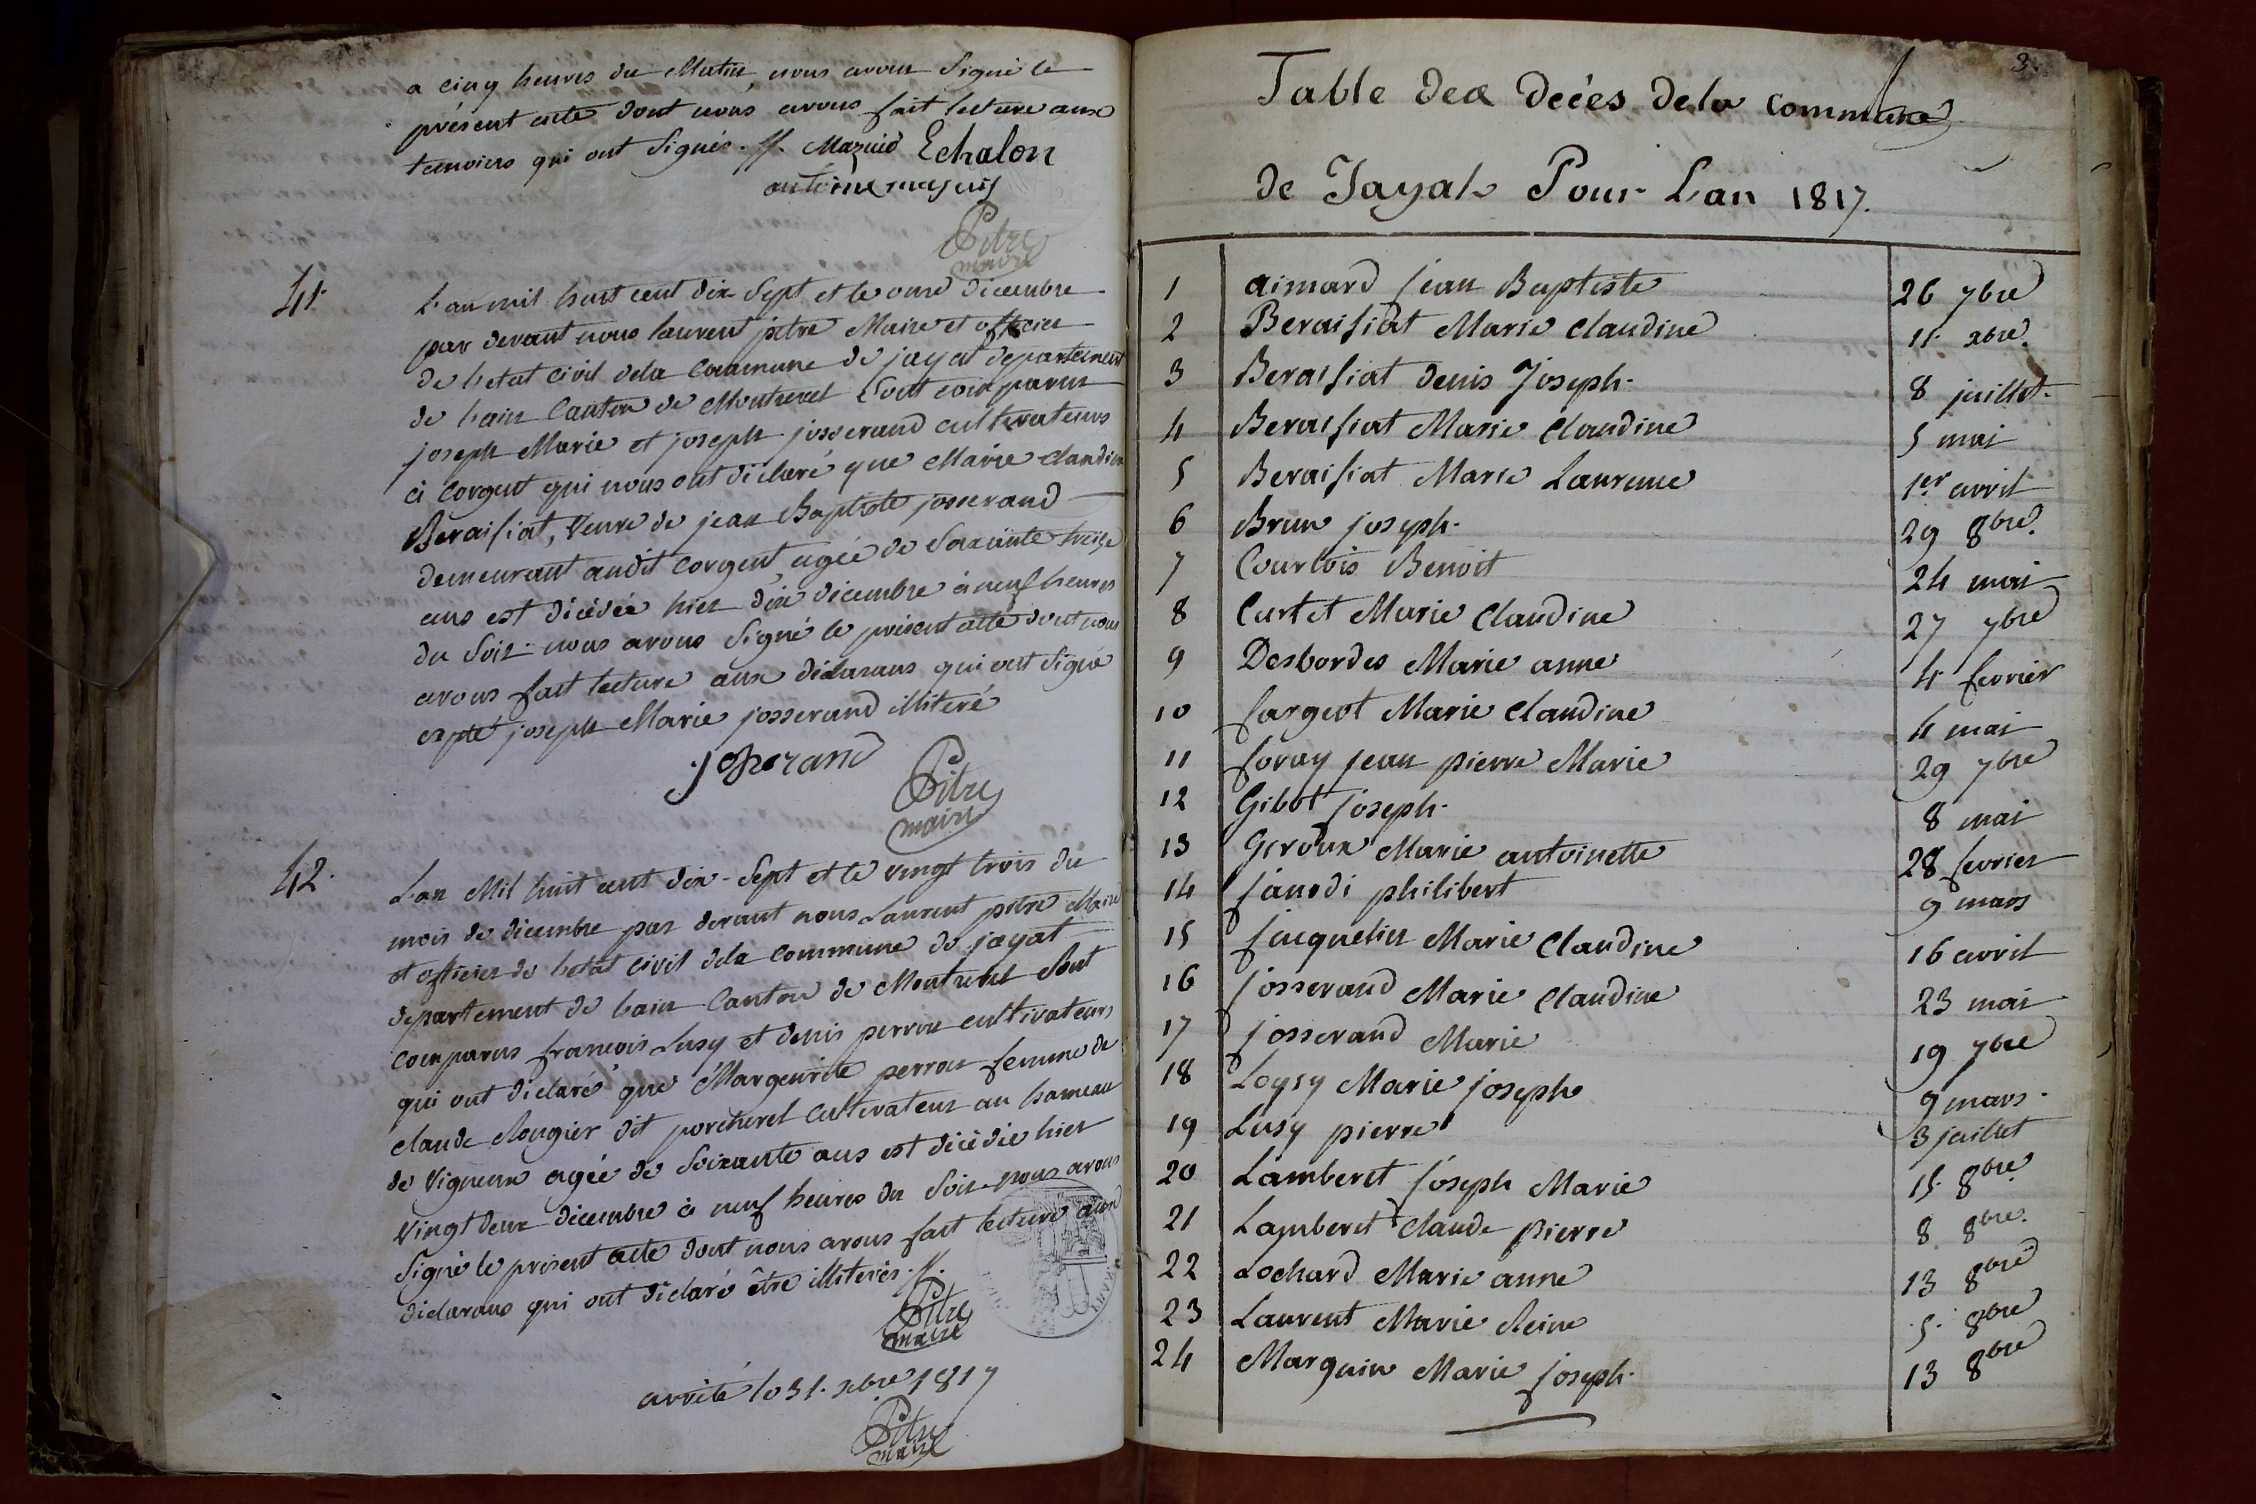 a cinq heures du Matin, nous avons Signé le
présent acte dont nous avons fait lecture aux
temoins qui ont Signés. //. Mazuid Echalon
antoine mazuit
Pitre
maire
41.
L'an mil huit cent dix Sept et le onze décembre
par devant nous laurent pitre Maire et officier
de l'etat civil dela Commune de jayat departement
de l'ain Canton de Montrevel Sont comparus
joseph Marie et joseph josserand cultivateurs
à Corgent qui nous ont déclaré que Marie claudine
Beraisiat, Veuve de jean Baptiste josserand
demeurant audit Corgent, agée de Soixante treize
ans est décédée hier dix décembre à neuf heures
du Soir. nous avons Signé le présent acte dont nous
avons fait lecture aux déclarans qui ont Signé
cxpté joseph Marie josserand illiteré
josserand
Pitre
maire
42.
L'an Mil huit cent dix-Sept et le vingt trois du
mois de décembre par devant nous Laurent pitre Maire
et officier de l'etat civil dela commune de jayat
departement de l'ain Canton de Montrevel Sont
comparus françois Lusy et denis perron cultivateurs
qui ont déclaré que Margeurite perron femme de
claude Rougier dit porcheret Cultivateur au hameau
de Vigneux agée de Soixante ans est décédée hier
Vingt deux décembre à neuf heures du Soir. nous avons
Signé le présent acte dont nous avons fait lecture aux
déclarans qui ont déclaré être illiterés. //.
Pitre
maire
arreté le 31. xbre 1817
Pitre
maire
3.
Table des Decés dela Commune
de Jayat Pour L'an 1817.
1 aimard jean Baptiste 26 7bre
2 Beraisiat Marie Claudine 11. xbre.
3 Beraisiat denis Joseph. 8 juillet.
4 Beraisiat Marie Claudine 5 mai
5 Beraisiat Marie Laurence 1er avril
6 Brun joseph. 29 8bre.
7 Courtois Benoit 24 mai
8 Curtet Marie Claudine 27 7bre
9 Desbordes Marie anne 4 fevrier
10 fargeot Marie Claudine 4 mai
11 foray jean pierre Marie 29 7bre
12 Gibot joseph. 8 mai
13 Geroux Marie antoinette 28 fevrier
14 janodi philibert 9 mars
15 jacquelin Marie Claudine 16 avril
16 josserand Marie Claudine 23 mai
17 josserand Marie 19 7bre
18 Loysy Marie joseph 9 mars.
19 Lusy pierre 3 juillet
20 Lamberet joseph Marie 15. 8bre.
21 Lamberet Claude Pierre 8 8bre.
22 Lochard Marie anne 13 8bre
23 Laurent Marie Reine 5. 8bre
24 Marguin Marie joseph. 13 8bre